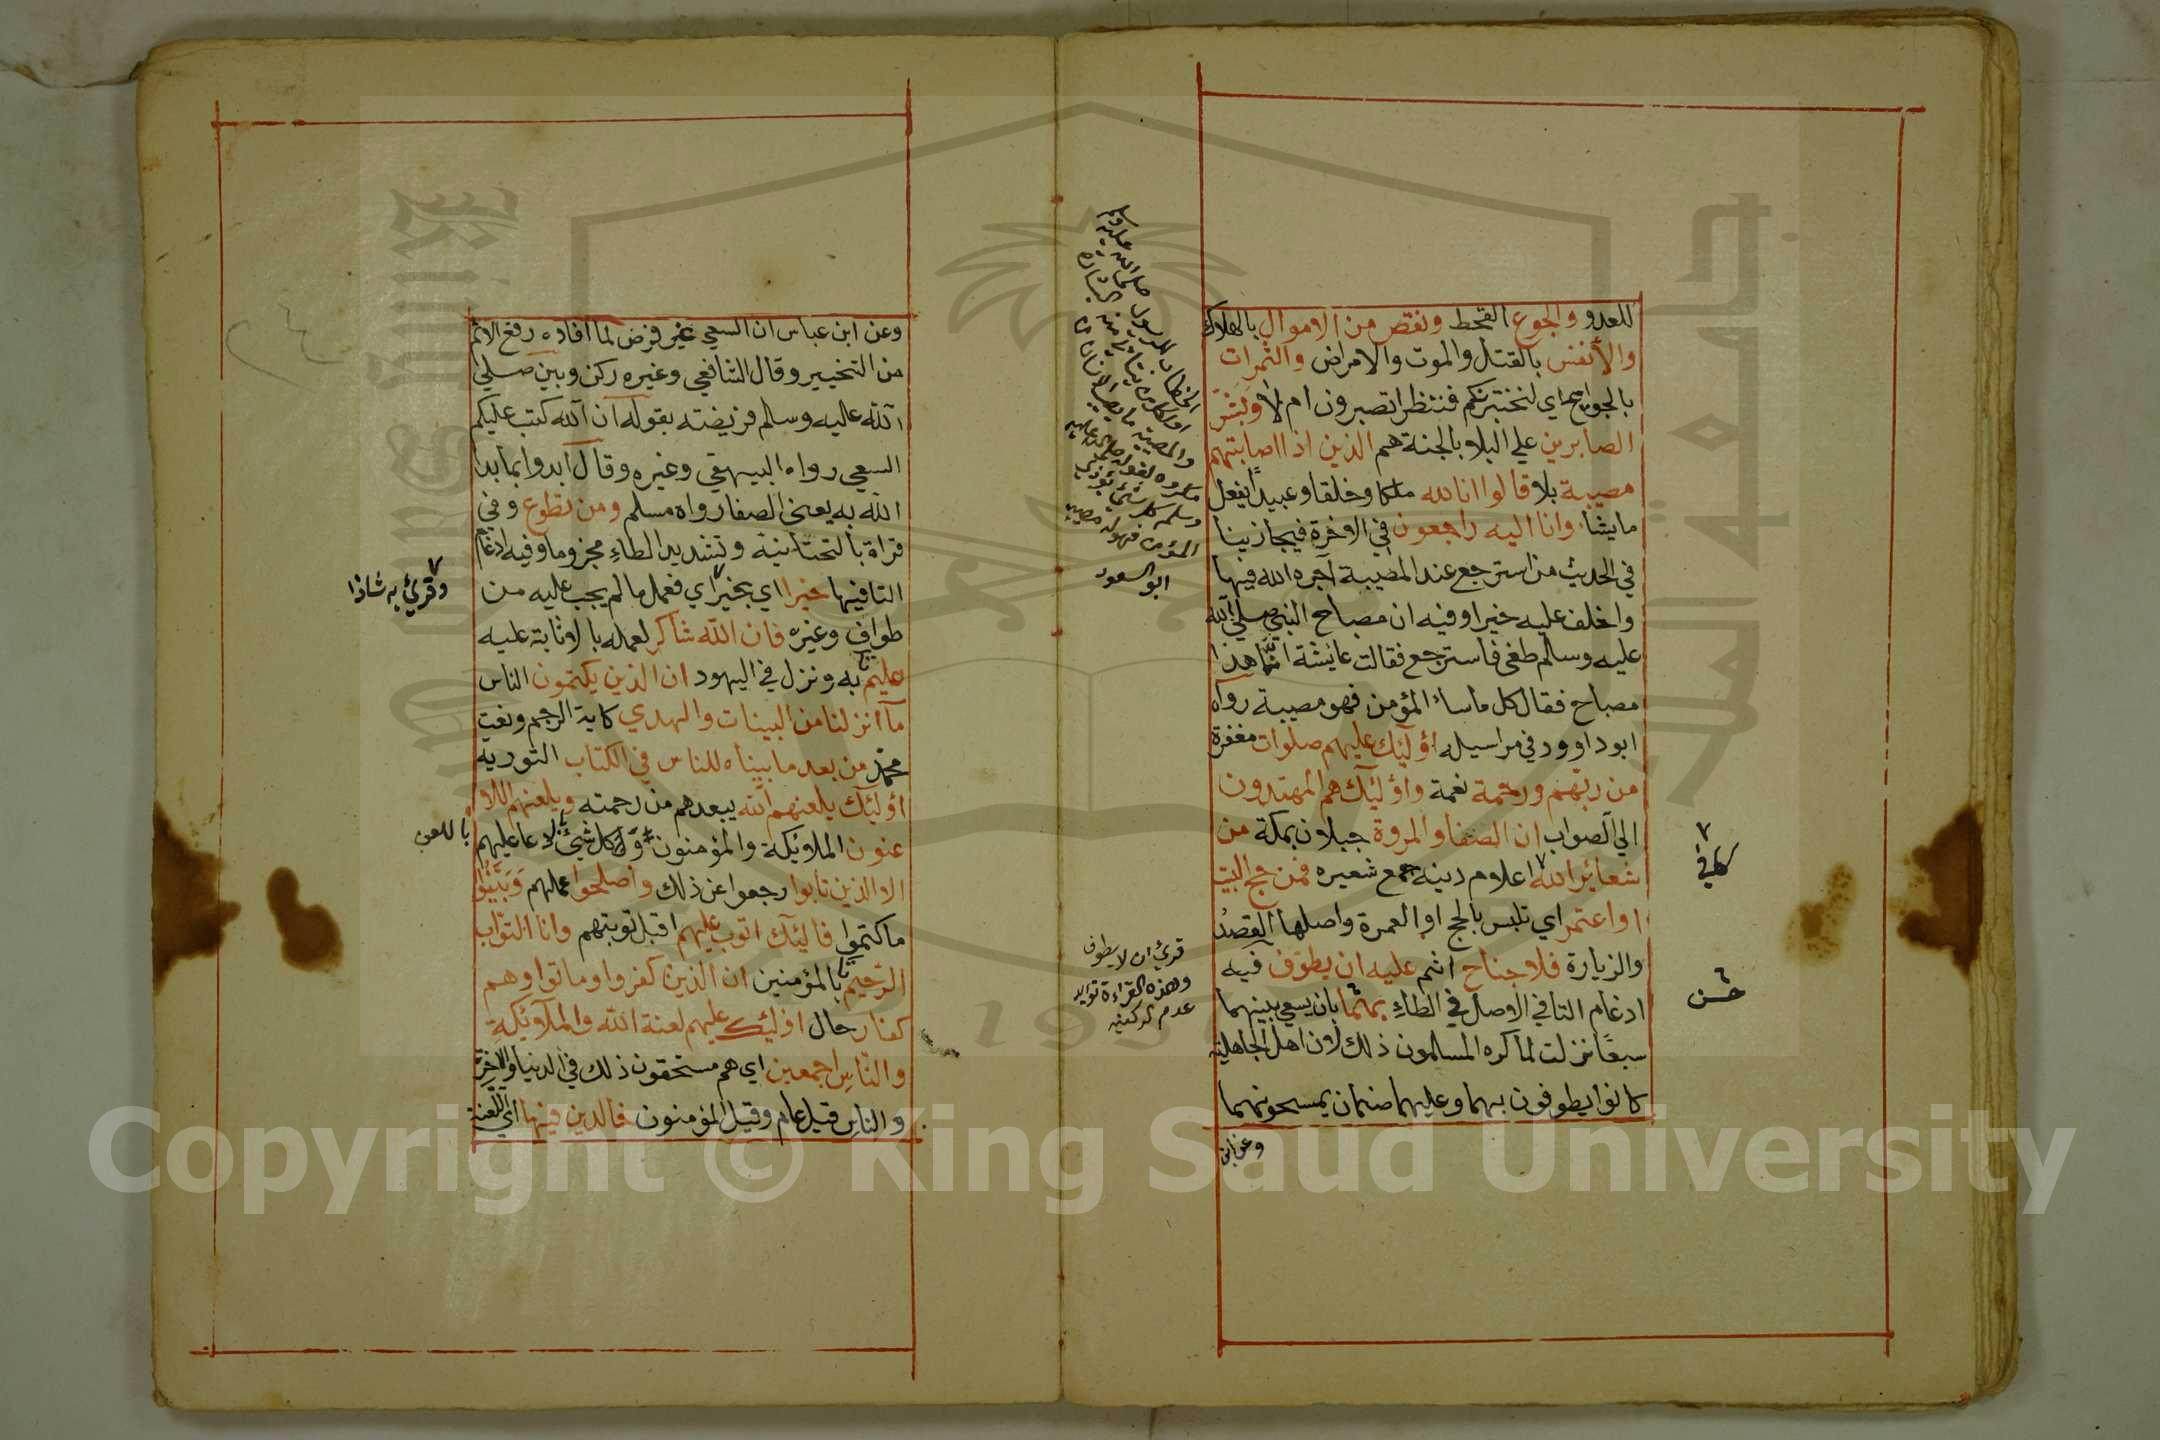 للعدو والجوع القحط ونقص من الاموال بالهلاك
والأنفس بالقتل والموت والامراض والثمرات
بالجوايح اي لنختبرنكم فننظر اتصبرون ام لا وبَشّر
الصابرين علي البلا بالجنة هم الذين اذا اصابتهم
مصيبة بلا قالوا انا لله ملكا وخلقا وعبيداً يفعل
مايشاء وانا اليه راجعون في الاخرة فيجازينا
في الحديث من استرجع عند المصيبة آجره الله فيها
واخلف عليه خيرا وفيه ان مصباح النبي صلي الله
عليه وسلم طغى فاسترجع فقالت عايشة انما هذا
مصباح فقال كل ماساء المؤمن فهو مصيبة رواه
ابوداوود في مراسيله اؤلئك عليهم صلوات مغفرة
من ربّهم ورحمة نعمة واؤلئك هم المهتدون
الي الصواب ان الصفا والمروة جبلان بمكة من
شعائر الله اعلام دينه جمع شعيره فمن حج البيت
او اعتمر اي تلبس بالحج او العمرة واصلها القصدُ
والزيارة فلا جناح اثم عليه ان يطوّف فيه
ادغام التا في الاصل في الطاءِ بهما بان يسعي بينهما
سبعًا نزلت لما كره المسلمون ذلك لان اهل الجاهلية
كانوا يطوفون بهما وعليهما صنمان يمسحونهما
وعن ابن
الخطاب للرسول صلى الله عليه وسلم
ابو السعود
قرئ ان لا يطوف
وهذه القراءة تؤيد
عدم الركنيه
حسن
وعن ابن عباس ان السعي غير فرض لما افاده رفع الاثم
من التخيير وقال الشافعي وغيره ركن وبين صلي
الله عليه وسلم فريضته بقوله ان الله كتب عليكم
السعي رواه البيهقي وغيره وقال ابدوا بما بدا
الله به يعني الصفا رواه مسلم ومن تطوع وفي
قراة بالتحتانية وتشديد الطاءِ مجزوما وفيه ادغام
التا فيها خيرا اي بخير اي فعمل مالم يجب عليه من
طواف وغيره فان الله شاكر لعمله بالاثابة عليه
عليم به ونزل في اليهود ان الذين يكتمون الناس
مآ انزلنا من البينات والهدي كاية الرجم ونعت
محمد من بعد ما بيناه للناس في الكتاب التورية
اؤلئك يلعنهم الله يبعدهم من رحمته ويلعنهم اللا
عنون الملائكة والمؤمنون او كل شيئ بالدعا عليهم
باللعن
الا الذين تابوا رجعوا عن ذلك واصلحوا عملهم وَبَيَّنُوا
ما كتموا فاليئك اتوب عليهم اقبل توبتهم وانا التوّاب
الرّحيم بالمؤمنين ان الذين كفروا وماتوا وهم
كفار حال اؤليئك عليهم لعنة الله والملآئكةِ
والنّاسِ اجمعين اي هم مستحقون ذلك في الدنيا والاخرة
والناس قيل عام وقيل المؤمنون خالدين فيها اي اللعنة
وقرئ به شاذا
Copyright © King Saud University